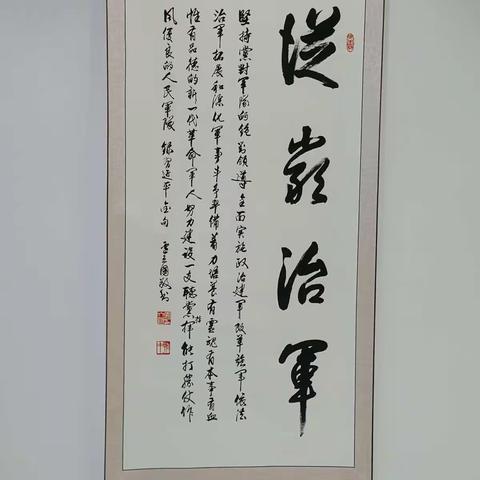 從嚴治軍
堅持黨對軍隊的絕对領導全面实施政治建軍改革强軍依法
治軍拓展和深化軍事斗争準備着力培养有靈魂有本事有血
性有品德的新一代革命軍人努力建設一支聽黨指揮能打勝仗作
風優良的人民軍隊 錄習近平金句